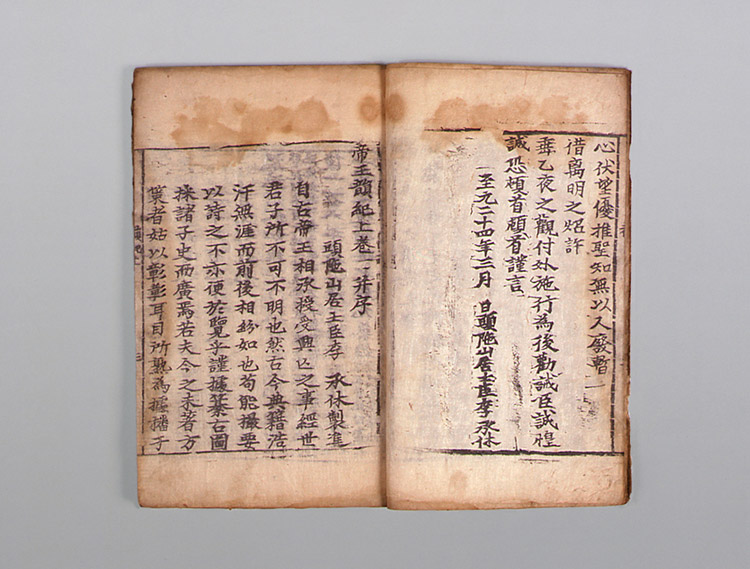 心伏望優推聖知無以人廢暫
借离明之炤許
垂乙夜之觀付外施行為後勸誡臣誠惶
誠恐頓首頓首謹言
至元二十四年三月 日頭陁山居士臣李承休
帝王韻紀上卷 并序
頭陁山居士臣李 承休製進
自古帝王相承授受興亡之事經世
君子所不可不明也然古今典籍浩
汗無涯而前後相紛如也苟能撮要
以詩之不亦便於覽乎謹據纂古圖
採諸子史而廣焉若夫今之未著方
策者姑以彰彰耳目所熟為據播于